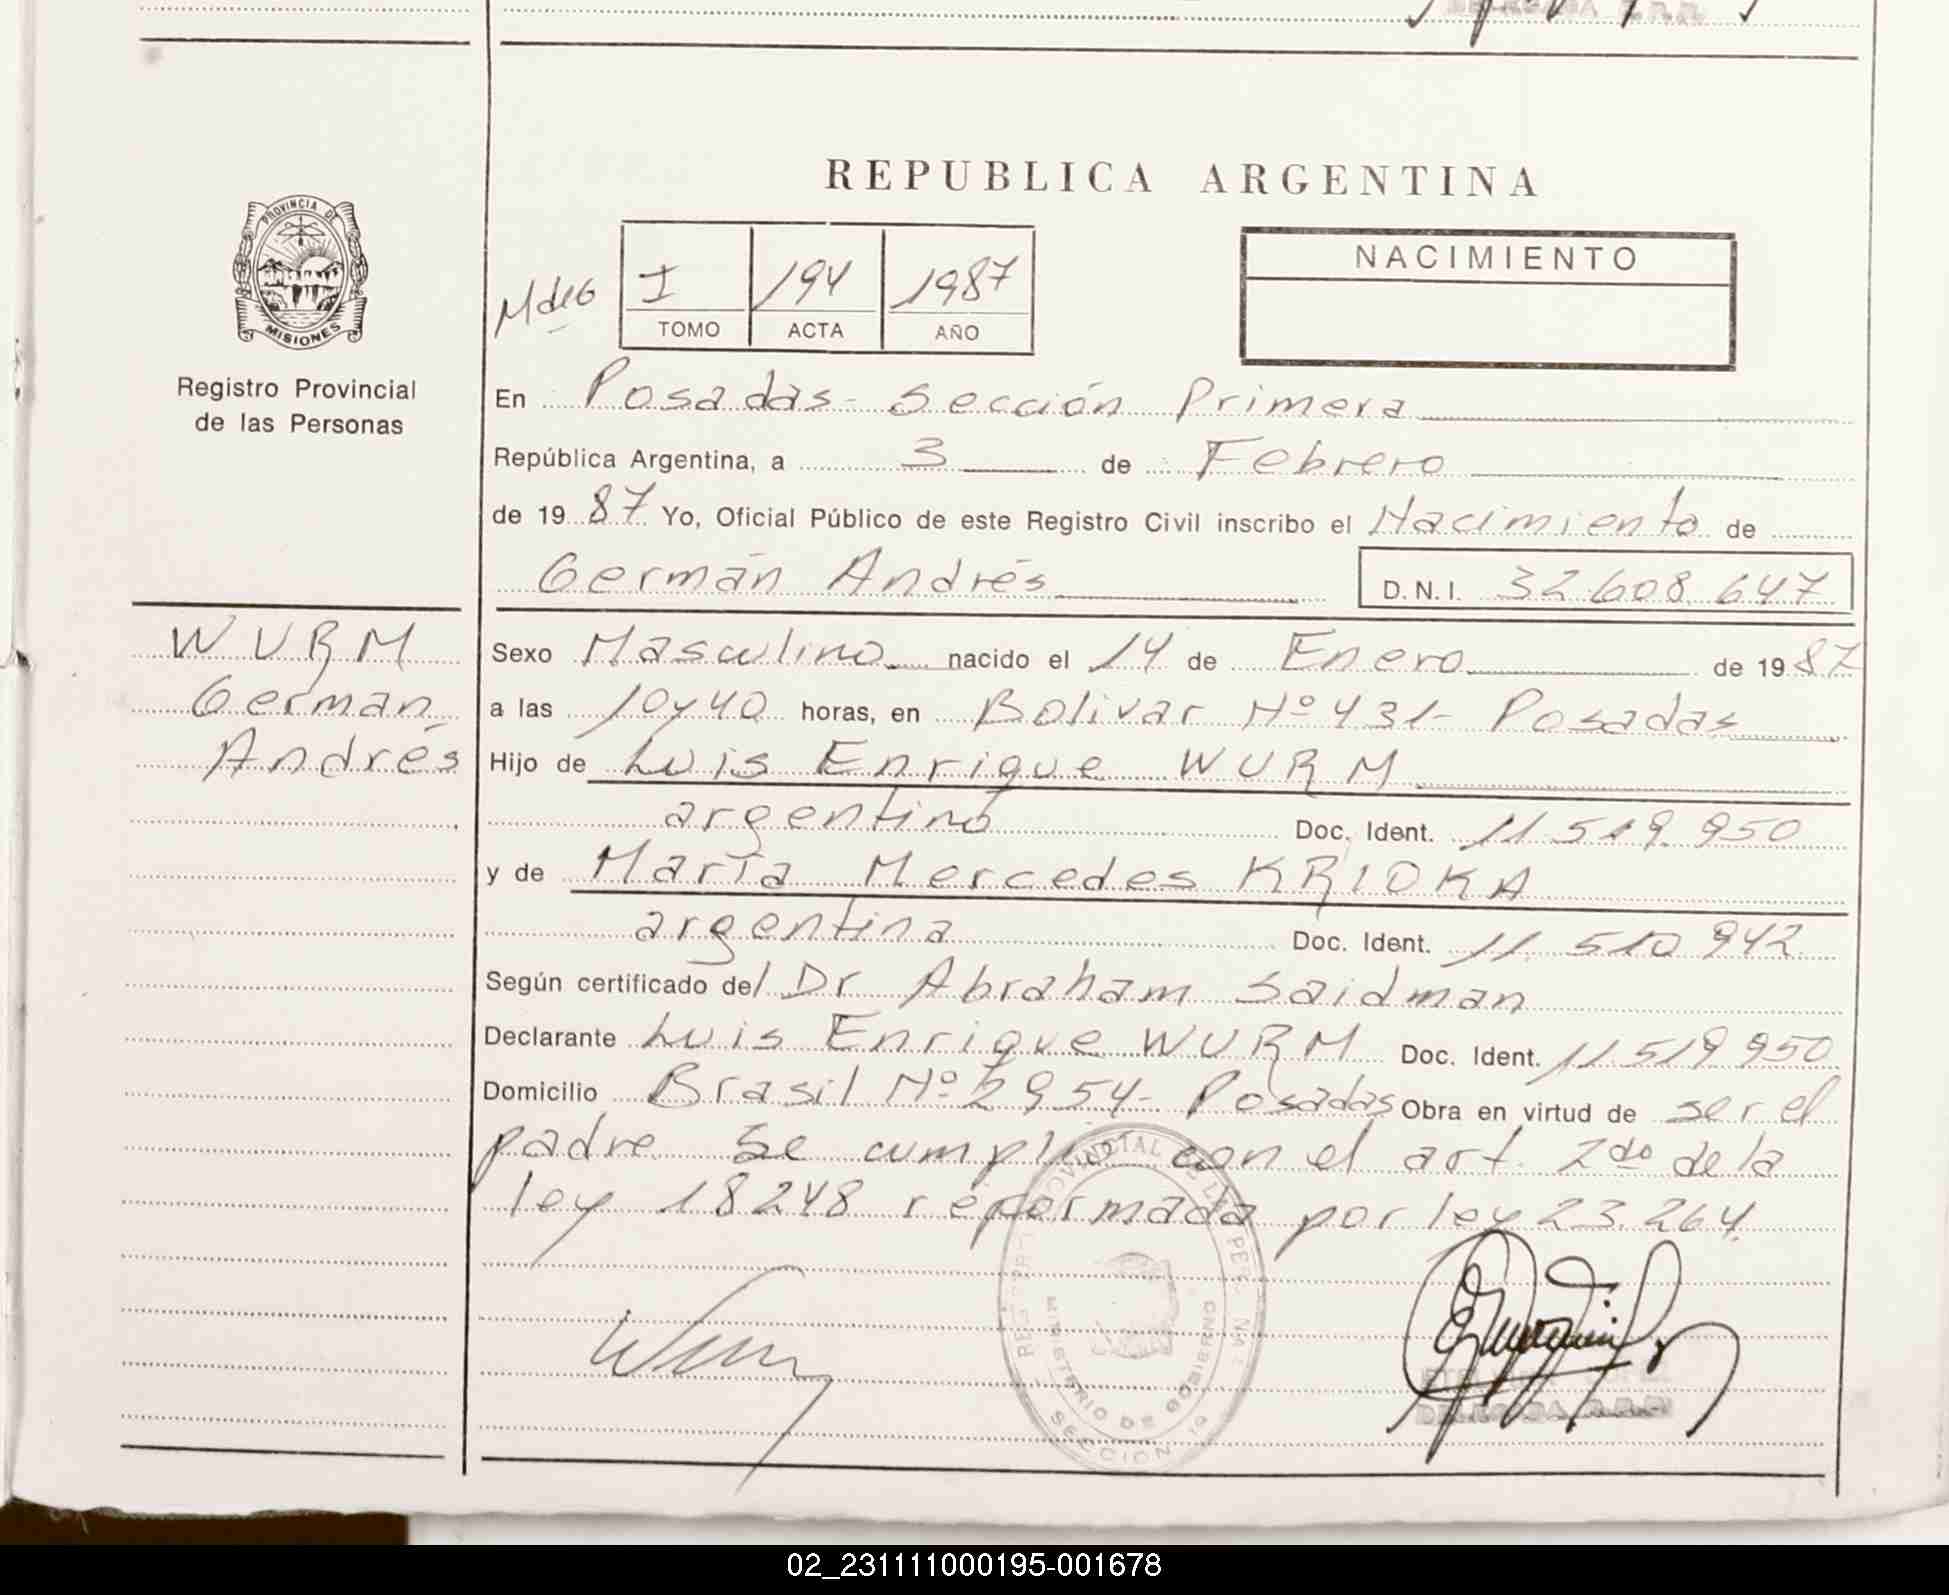 REPUBLICA ARGENTINA
PROVINCIA DE
MISIONES
Registro Provincial
de las Personas
I 194 1987
TOMO ACTA AÑO
NACIMIENTO
En Posadas - Sección Primera
República Argentina, a 3 de Febrero
de 1987 Yo, Oficial Público de este Registro Civil inscribo el Nacimiento de
Germán Andrés D.N.I. 32608647
WURM
German
Andrés
Sexo Masculino nacido el 14 de Enero de 1987
a las 10y40 horas, en Bolivar Nº 431- Posadas
Hijo de Luis Enrique WURM
argentino Doc. Ident. 11.519.950
y de María Mercedes KRIOKA
argentina Doc. Ident. 11.510.942
Según certificado del Dr Abraham Saidman
Declarante Luis Enrique WURM Doc. Ident. 11.519.950
Domicilio Brasil Nº 2954- Posadas Obra en virtud de ser el
padre. Se cumplió con el art. 2do de la
ley 18248 reformada por ley 23.264.
MINISTERIO DE GOBIERNO
SECCION 1º
02_231111000195-001678